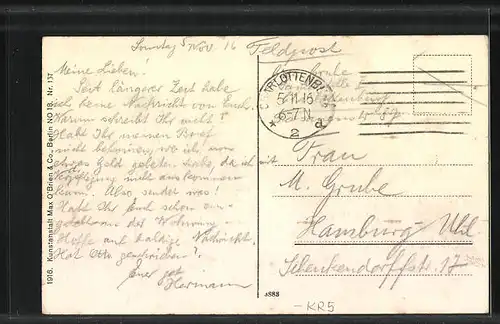 Sonntag 5 Nov. 16
Feldpost
Meine Lieben!
Seit längerer Zeit habe
ich keine Nachricht von Euch.
Warum schreibt Ihr nicht?
Habt Ihr meinen Brief
nicht bekommen, wo ich um
etwas Geld gebeten habe, da ich mit
Verpflegung nicht auskommen
kann. Also sendet was!
Habt Ihr Euch schon
Hoffe auf baldige Nachricht.
Hat Otto geschrieben?
Euer
Hermann
CHARLOTTENBURG
5.11.16
6-7N
* 2 d
Frau
M. Grube
Hamburg Uhl.
Schenkendorffstr. 17
1916. Kunstanstalt Max O'Brien & Co., Berlin NO 18. Nr. 137
4883
-KR5